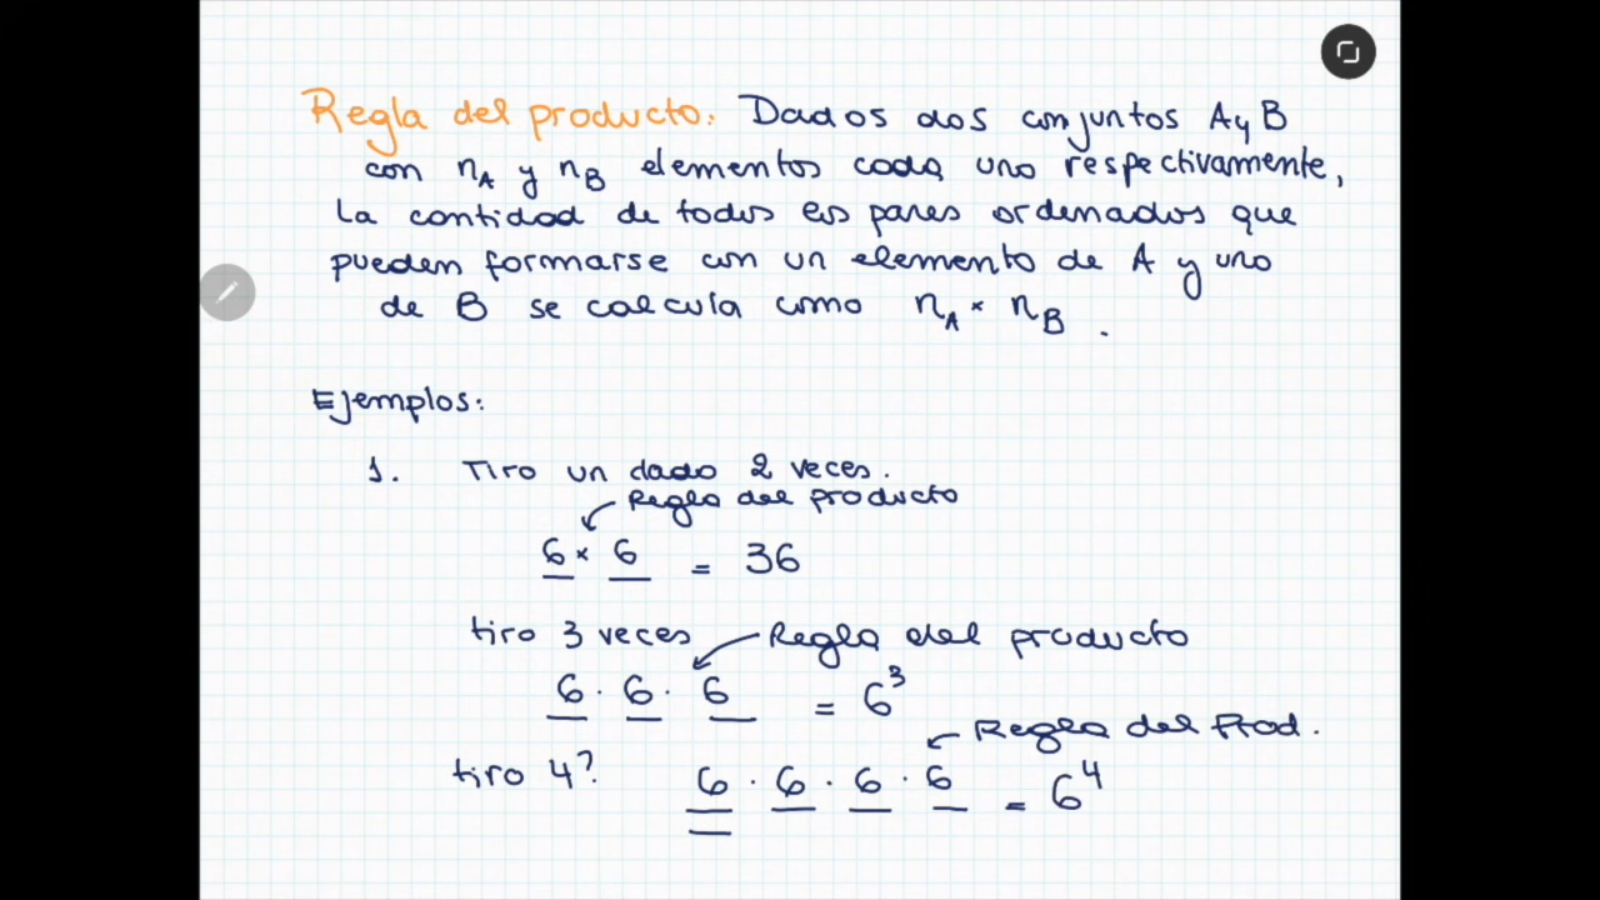 Regla del producto: Dados dos conjuntos A y B
con nA y nB elementos cada uno respectivamente,
La cantidad de todos los pares ordenados que
pueden formarse con un elemento de A y uno
de B se calcula como nA × nB .
Ejemplos:
1. Tiro un dado 2 veces.
Regla del producto
6 × 6 = 36
tiro 3 veces Regla del producto
6 · 6 · 6 = 6³
Regla del Prod.
tiro 4? 6 · 6 · 6 · 6 = 6⁴